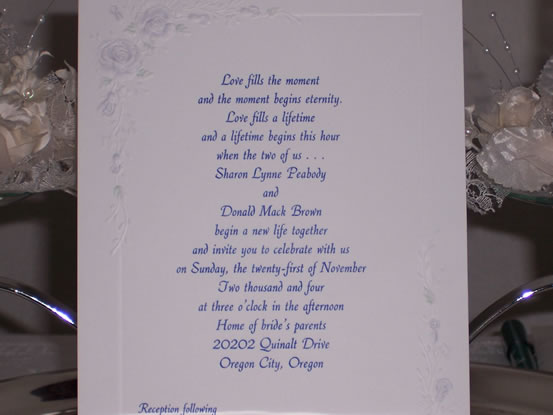 Love fills the moment
and the moment begins eternity.
Love fills a lifetime
and a lifetime begins this hour
when the two of us . . .
Sharon Lynne Peabody
and
Donald Mack Brown
begin a new life together
and invite you to celebrate with us
on Sunday, the twenty-first of November
Two thousand and four
at three o'clock in the afternoon
Home of bride's parents
20202 Quinalt Drive
Oregon City, Oregon
Reception following